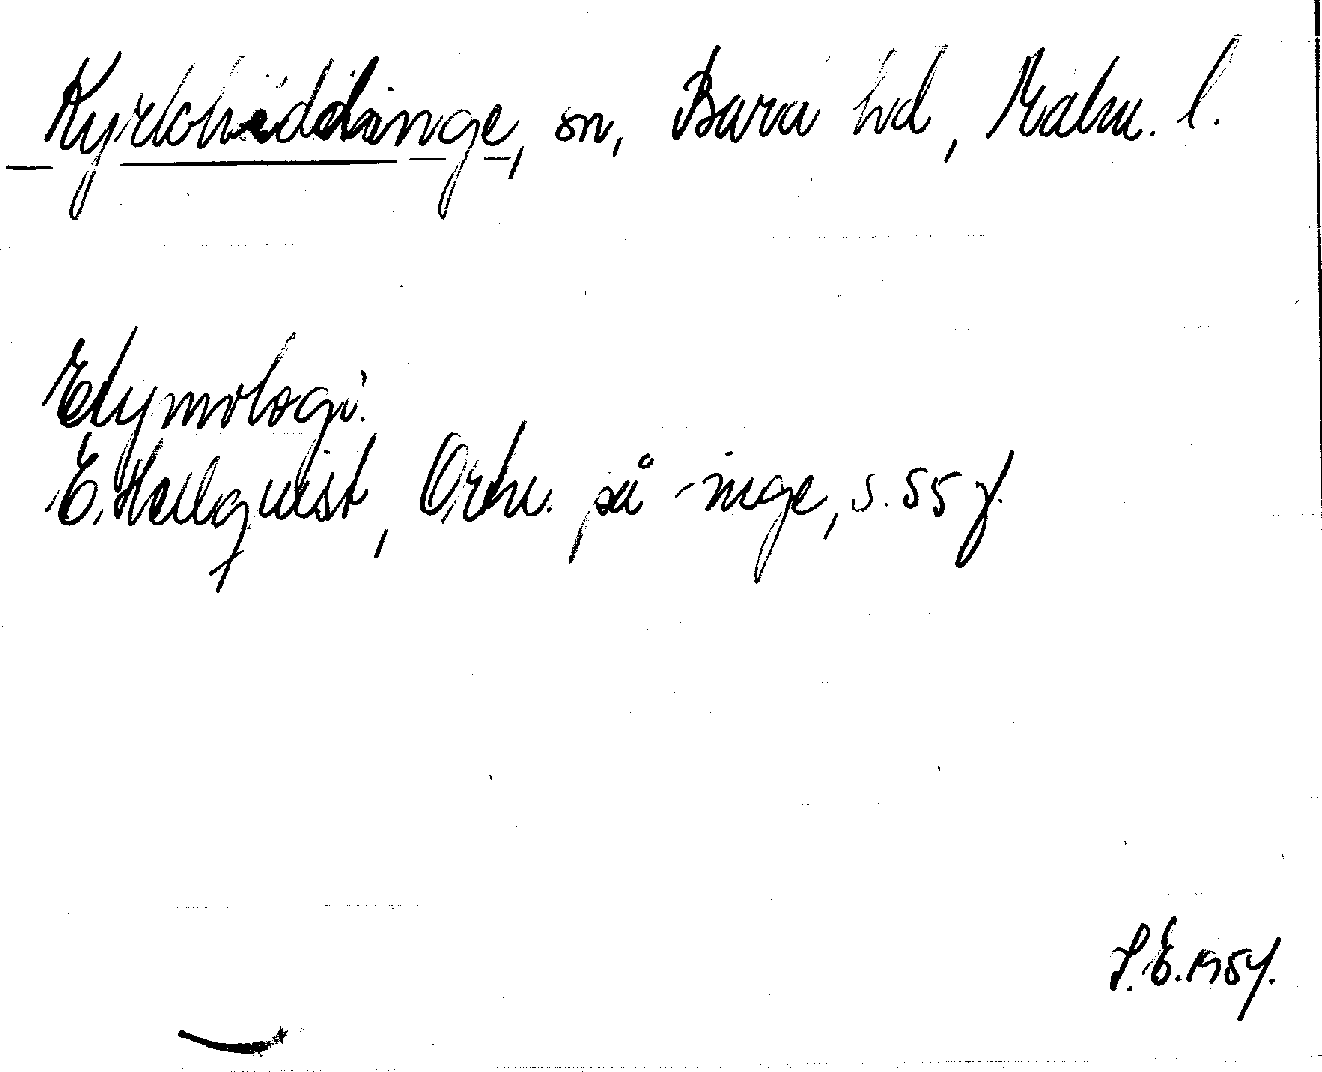 Kyrkheddinge, sn, Bara hd, Malm. l.
Etymologi.
E. Hellquist, Ortn. på -inge, s. 55 f.
S.E. 1954.